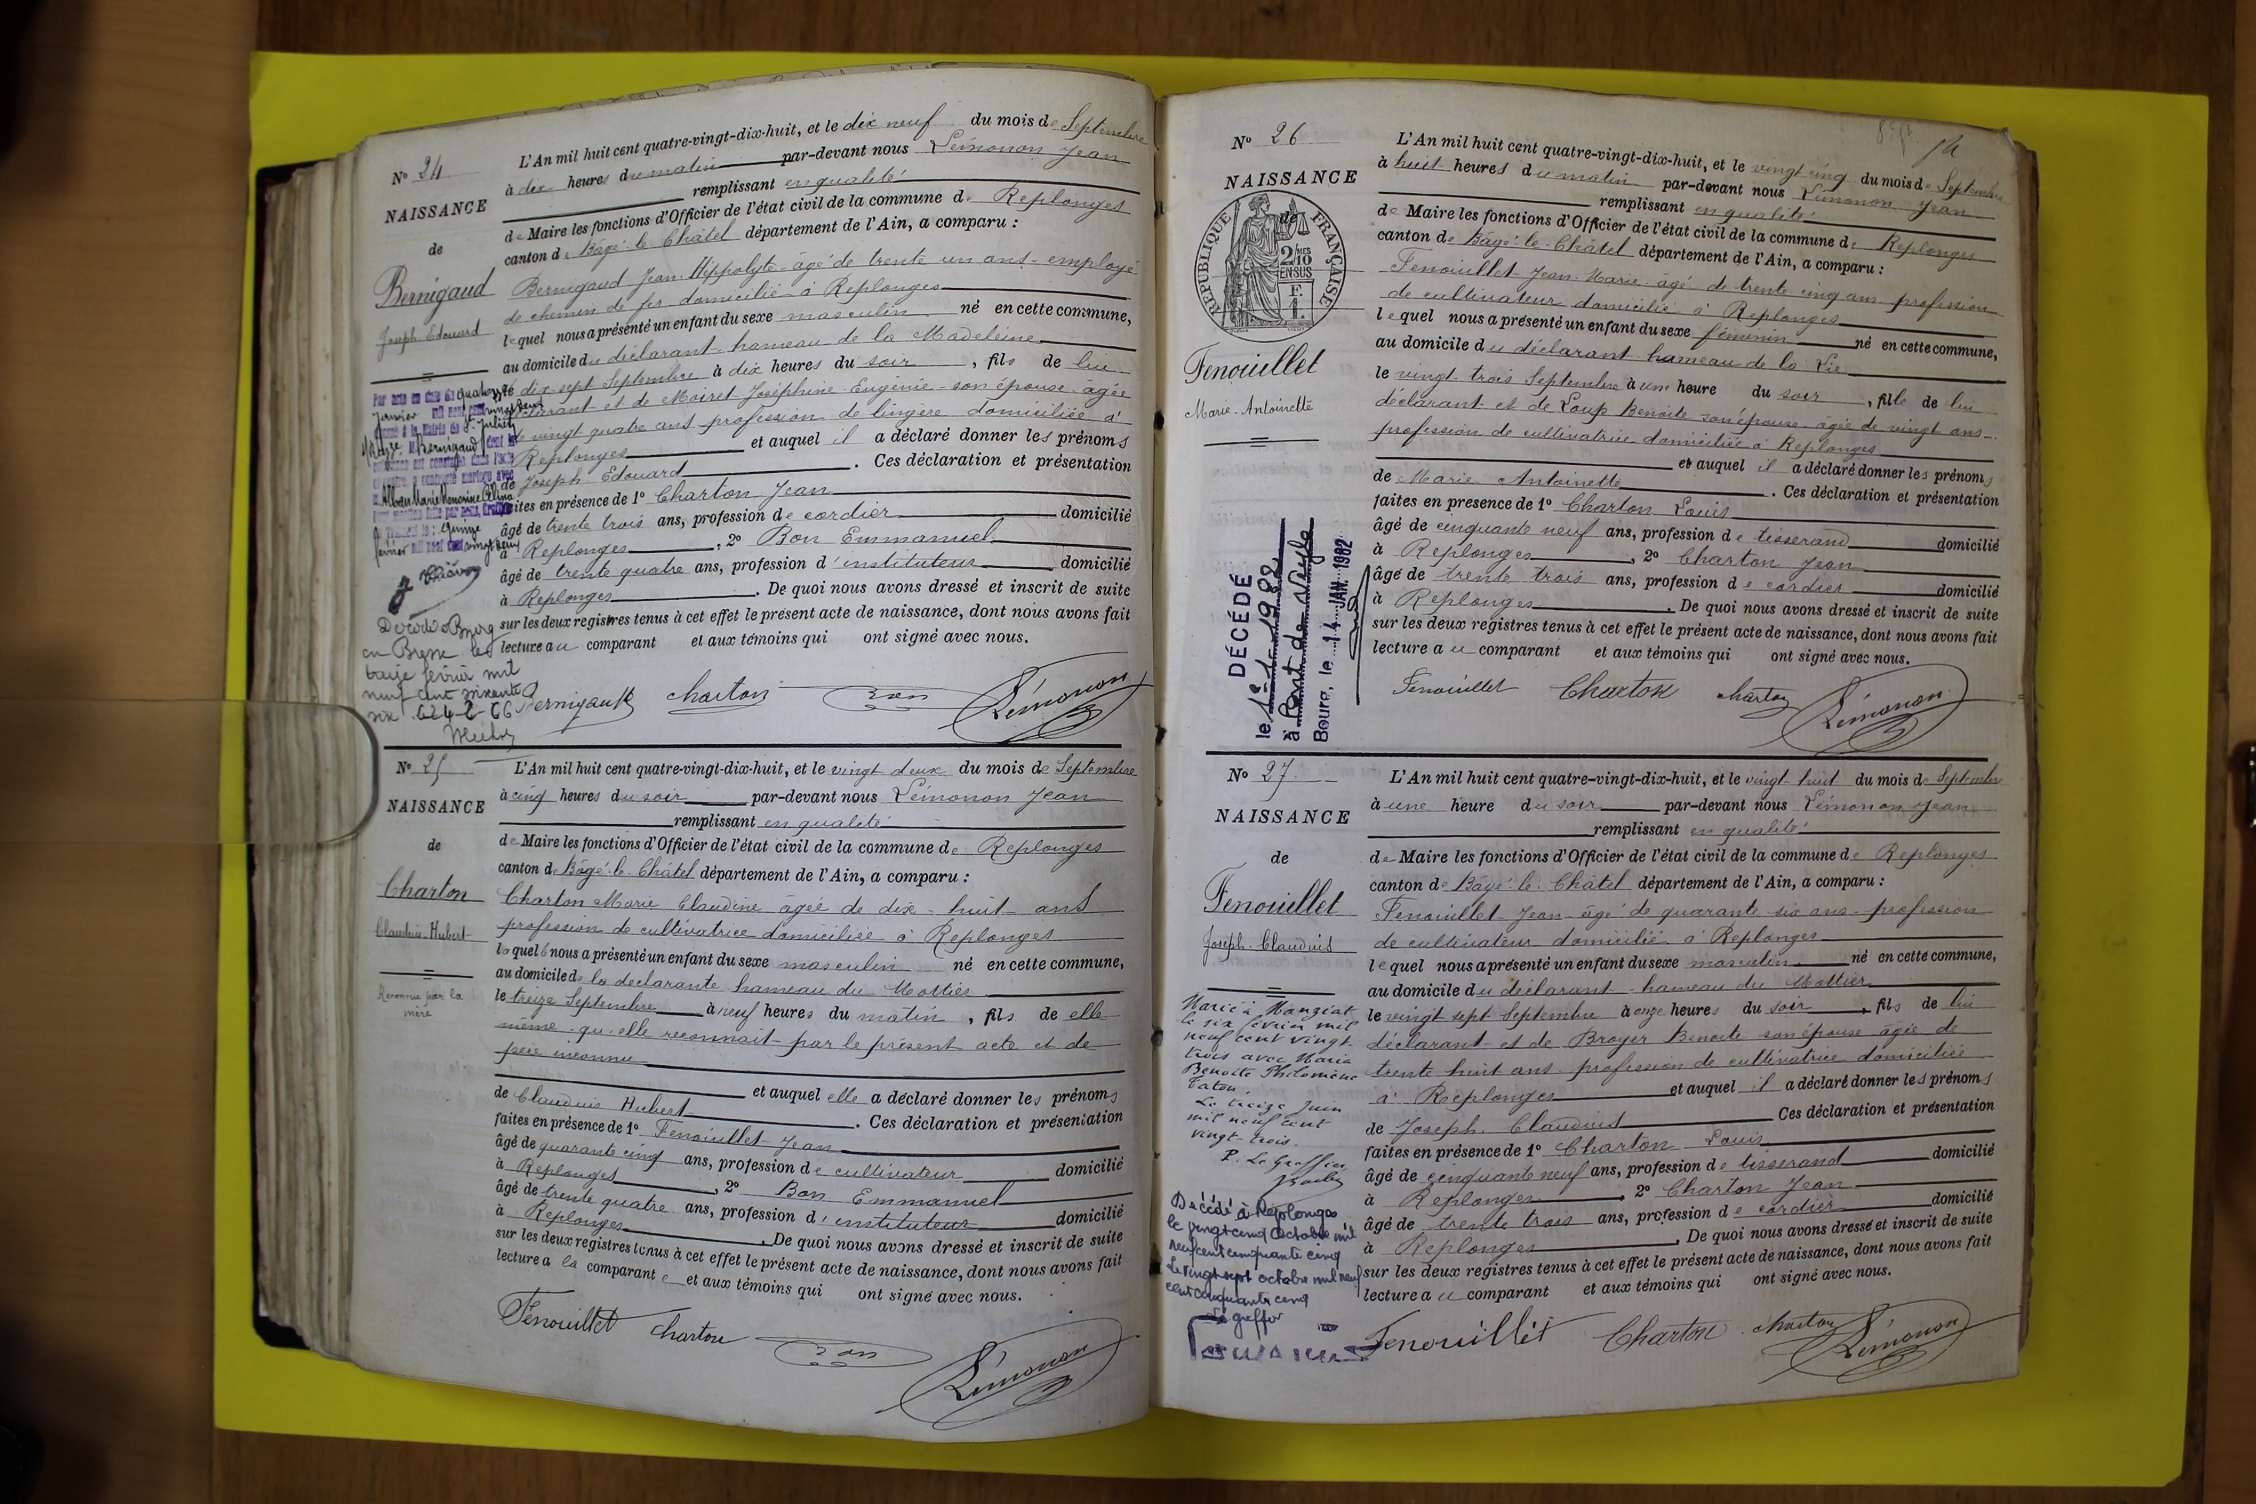 N° 24
NAISSANCE
de
Bernigaud
Joseph Edouard
L'An mil huit cent quatre-vingt-dix-huit, et le dix neuf du mois de Septembre
à dix heures du matin par-devant nous Lémonon Jean
remplissant en qualité
de Maire les fonctions d'Officier de l'état civil de la commune de Replonges
canton de Bâgé-le-Châtel département de l'Ain, a comparu :
Bernigaud Jean-Hippolyte âgé de trente un ans employé
de chemin de fer domicilié à Replonges
lequel nous a présenté un enfant du sexe masculin né en cette commune,
au domicile du déclarant hameau de la Madeleine
dix-sept Septembre à dix heures du soir, fils de lui
déclarant et de Moiret Joséphine-Eugénie son épouse âgée
de vingt quatre ans profession de lingère domiciliée à
Replonges et auquel il a déclaré donner les prénoms
de Joseph Edouard. Ces déclaration et présentation
faites en présence de 1° Charton Jean
âgé de trente trois ans, profession de cordier domicilié
à Replonges, 2° Bon Emmanuel
âgé de trente quatre ans, profession d'instituteur domicilié
à Replonges. De quoi nous avons dressé et inscrit de suite
sur les deux registres tenus à cet effet le présent acte de naissance, dont nous avons fait
lecture au comparant et aux témoins qui ont signé avec nous.
Par acte en date du quatorze
janvier mil neuf cent vingt deux
dressé à la Mairie de St Julien
s/Reyssouze M. Bernigaud dont la
naissance est constatée dans l'acte
ci-contre a contracté mariage avec
février mil neuf cent vingt deux
Décédé à Bourg
en Bresse le
treize février mil
neuf cent soixante
six
Bernigaud Charton Bon Lémonon
N° 25
NAISSANCE
de
Charton
Claudius-Hubert
Reconnu par la
mère
L'An mil huit cent quatre-vingt-dix-huit, et le vingt deux du mois de Septembre
à cinq heures du soir par-devant nous Lémonon Jean
remplissant en qualité
de Maire les fonctions d'Officier de l'état civil de la commune de Replonges
canton de Bâgé-le-Châtel département de l'Ain, a comparu :
Charton Marie Claudine âgée de dix-huit ans
profession de cultivatrice domiciliée à Replonges
laquelle nous a présenté un enfant du sexe masculin né en cette commune,
au domicile de la déclarante hameau du Mottier
le treize Septembre à neuf heures du matin, fils de elle
même qu'elle reconnait par le présent acte et de
père inconnu
et auquel elle a déclaré donner les prénoms
de Claudius Hubert. Ces déclaration et présentation
faites en présence de 1° Fenouillet Jean
âgé de quarante cinq ans, profession de cultivateur domicilié
à Replonges, 2° Bon Emmanuel
âgé de trente quatre ans, profession d'instituteur domicilié
à Replonges. De quoi nous avons dressé et inscrit de suite
sur les deux registres tenus à cet effet le présent acte de naissance, dont nous avons fait
lecture a la comparante et aux témoins qui ont signé avec nous.
Fenouillet Charton Bon Lémonon
N° 26
NAISSANCE
de
REPUBLIQUE FRANÇAISE
2/10 MES
EN SUS
F.
1.
Fenouillet
Marie-Antoinette
L'An mil huit cent quatre-vingt-dix-huit, et le vingt cinq du mois de Septembre
à huit heures du matin par-devant nous Lémonon Jean
remplissant en qualité
de Maire les fonctions d'Officier de l'état civil de la commune de Replonges
canton de Bâgé-le-Châtel département de l'Ain, a comparu :
Fenouillet Jean-Marie âgé de trente cinq ans profession
de cultivateur domicilié à Replonges
lequel nous a présenté un enfant du sexe féminin né en cette commune,
au domicile du déclarant hameau de la Lie
le vingt-trois Septembre à une heure du soir, fille de lui
déclarant et de Loup Benoîte son épouse âgée de vingt ans
profession de cultivatrice domiciliée à Replonges
et auquel il a déclaré donner les prénoms
de Marie Antoinette. Ces déclaration et présentation
faites en presence de 1° Charton Louis
âgé de cinquante neuf ans, profession de tisserand domicilié
à Replonges, 2° Charton Jean
âgé de trente trois ans, profession de cordier domicilié
à Replonges. De quoi nous avons dressé et inscrit de suite
sur les deux registres tenus à cet effet le présent acte de naissance, dont nous avons fait
lecture au comparant et aux témoins qui ont signé avec nous.
DÉCÉDÉ
le 1-1-1982
à Pont de Veyle
Bourg, le 14 JAN. 1982
Fenouillet Charton Charton Lémonon
N° 27
NAISSANCE
de
Fenouillet
Joseph-Claudius
L'An mil huit cent quatre-vingt-dix-huit, et le vingt huit du mois de Septembre
à une heure du soir par-devant nous Lémonon Jean
remplissant en qualité
de Maire les fonctions d'Officier de l'état civil de la commune de Replonges
canton de Bâgé-le-Châtel département de l'Ain, a comparu :
Fenouillet Jean âgé de quarante-six ans profession
de cultivateur domicilié à Replonges
lequel nous a présenté un enfant du sexe masculin né en cette commune,
au domicile du déclarant hameau du Mottier
le vingt sept Septembre à onze heures du soir, fils de lui
déclarant et de Broyer Benoite son épouse âgée de
trente huit ans profession de cultivatrice domiciliée
à Replonges et auquel il a déclaré donner les prénoms
de Joseph Claudius Ces déclaration et présentation
faites en présence de 1° Charton Louis
âgé de cinquante neuf ans, profession de tisserand domicilié
à Replonges, 2° Charton Jean
âgé de trente trois ans, profession de cordier domicilié
à Replonges. De quoi nous avons dressé et inscrit de suite
sur les deux registres tenus à cet effet le présent acte de naissance, dont nous avons fait
lecture au comparant et aux témoins qui ont signé avec nous.
Marié à Manziat
le six février mil
neuf cent vingt
trois avec Maria
Benoite Philomène
Caton.
Le treize Juin
mil neuf cent
vingt-trois.
P. Le Greffier
Décédé à Replonges
le vingt cinq Octobre mil
neuf cent cinquante cinq
Le vingt sept octobre mil neuf
cent cinquante cinq
Le greffier
Fenouillet Charton Charton Lémonon